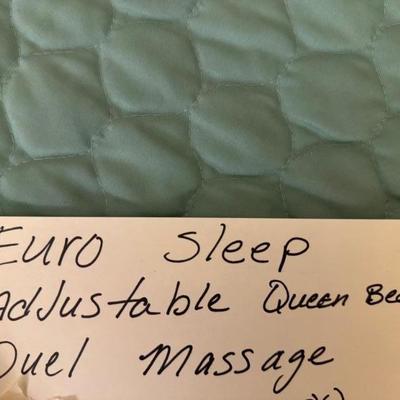 Euro Sleep
Adjustable Queen Bed
Duel Massage